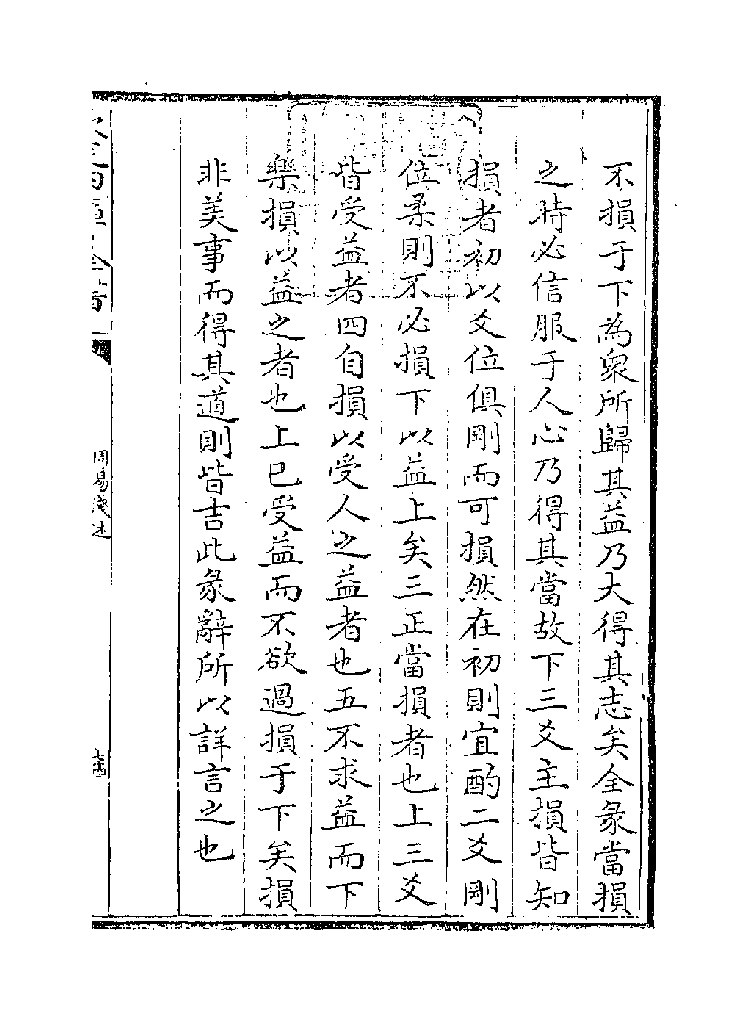 不損于下為衆所歸其益乃大得其志矣全彖當損
之時必信服于人心乃得其當故下三爻主損皆知
損者初以爻位俱剛而可損然在初則宜酌二爻剛
位柔則不必損下以益上矣三正當損者也上三爻
皆受益者四自損以受人之益者也五不求益而下
樂損以益之者也上已受益而不欲過損于下矣損
非美事而得其道則皆吉此彖辭所以詳言之也
周易淺述